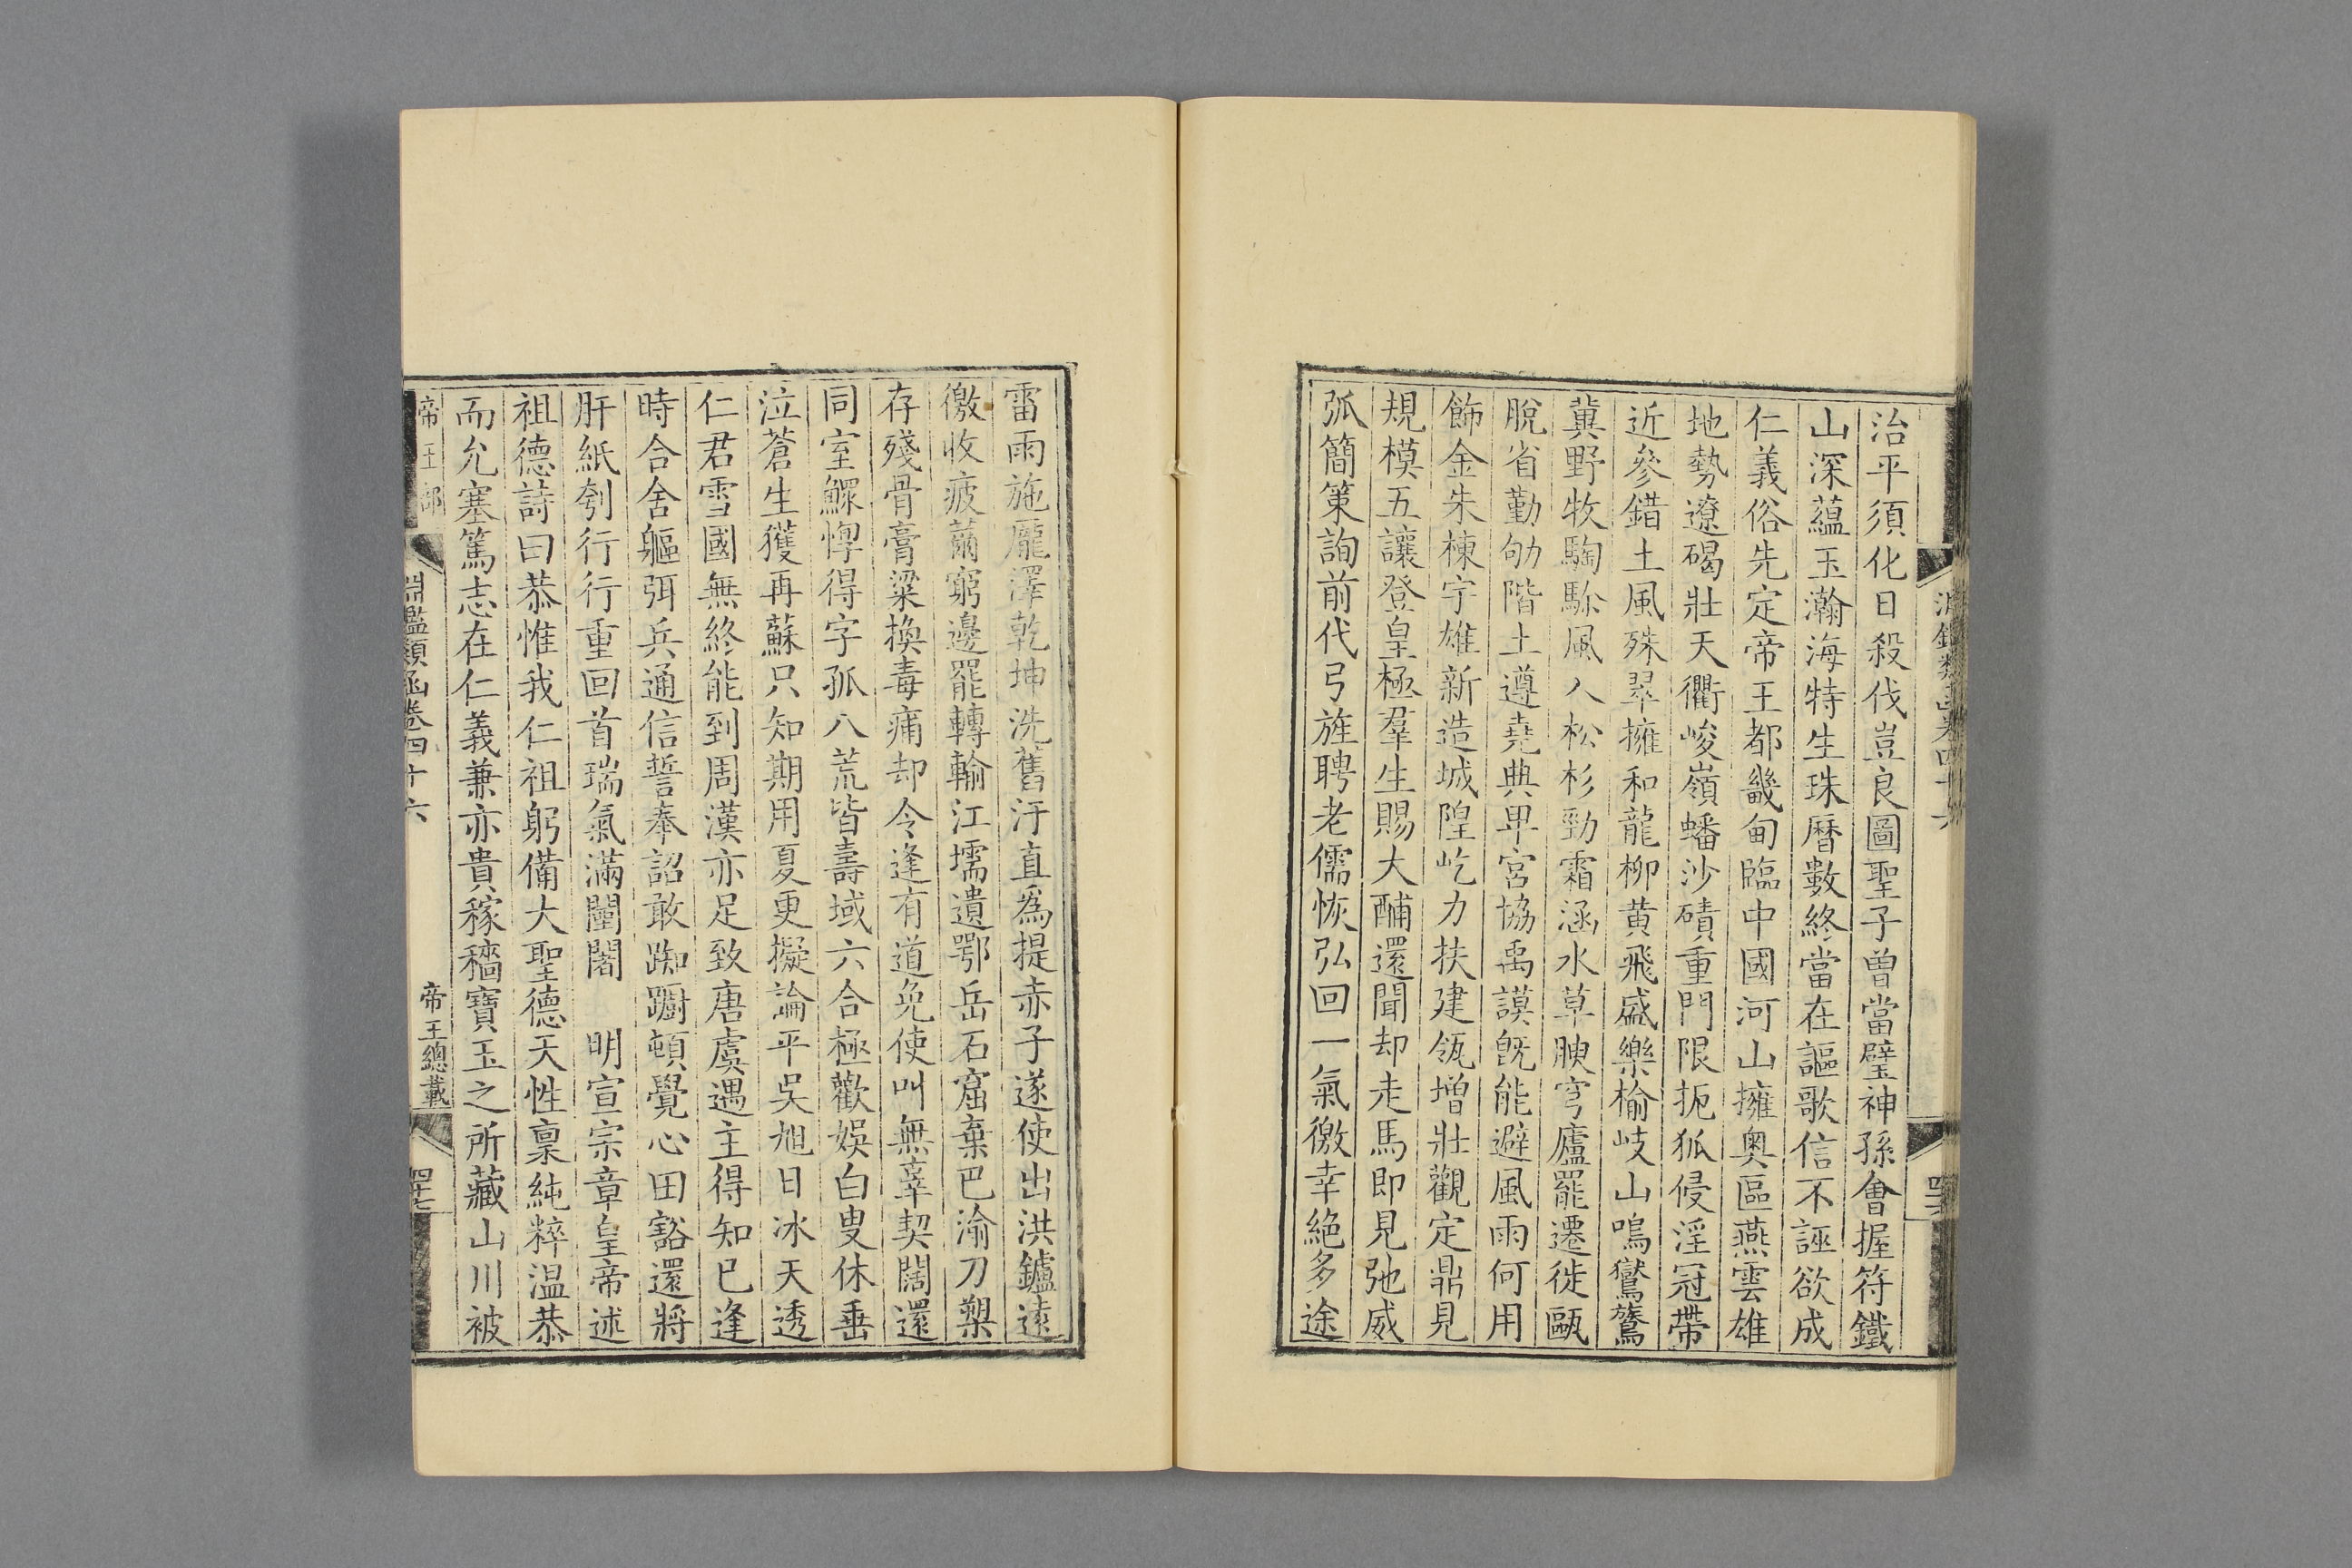 淵鑑類函卷四十六
治平須化日殺伐豈良圖聖子曾當璧神孫會握符鐵
山深蘊玉瀚海特生珠曆數終當在謳歌信不誣欲成
仁義俗先定帝王都畿甸臨中國河山擁奧區燕雲雄
地勢遼碣壯天衢峻嶺蟠沙磧重門限扼狐侵淫冠帶
近參錯土風殊翠擁和龍柳黄飛盛樂榆岐山鳴鸑鷟
冀野牧騊駼風入松杉勁霜涵水草腴穹廬罷遷徙甌
脫省勤劬階土遵堯典卑宮協禹謨旣能避風雨何用
飾金朱棟宇雄新造城隍屹力扶建瓴增壯觀定鼎見
規模五讓登皇極羣生賜大酺還聞却走馬即見弛威
弧簡策詢前代弓旌聘老儒恢弘回一氣徼幸絶多途
雷雨施厖澤乾坤洗舊汙直爲提赤子遂使出洪鑪遠
徼收疲薾窮邊罷轉輸江壖遺鄂岳石窟棄巴渝刀槊
存殘骨膏粱換毒痡却令逢有道免使叫無辜契闊還
同室鰥惸得字孤八荒皆壽域六合極歡娱白叟休垂
泣蒼生獲再蘇只知期用夏更擬論平吳旭日冰天透
仁君雪國無終能到周漢亦足致唐虞遇主得知已逢
時合舍軀弭兵通信誓奉詔敢踟蹰頓覺心田豁還將
肝紙刳行行重回首瑞氣滿闉闍　明宣宗章皇帝述
祖德詩曰恭惟我仁祖躬備大聖德天性稟純粹温恭
而允塞篤志在仁義兼亦貴稼穡寶玉之所藏山川被
帝王部
淵鑑類函卷四十六
帝王總載